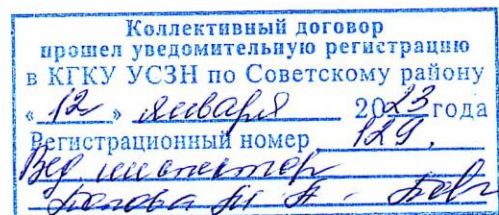 Коллективный договор
прошел уведомительную регистрацию
в КГКУ УСЗН по Советскому району
«12» января 2023 года
Регистрационный номер 129.
Вед инспектор